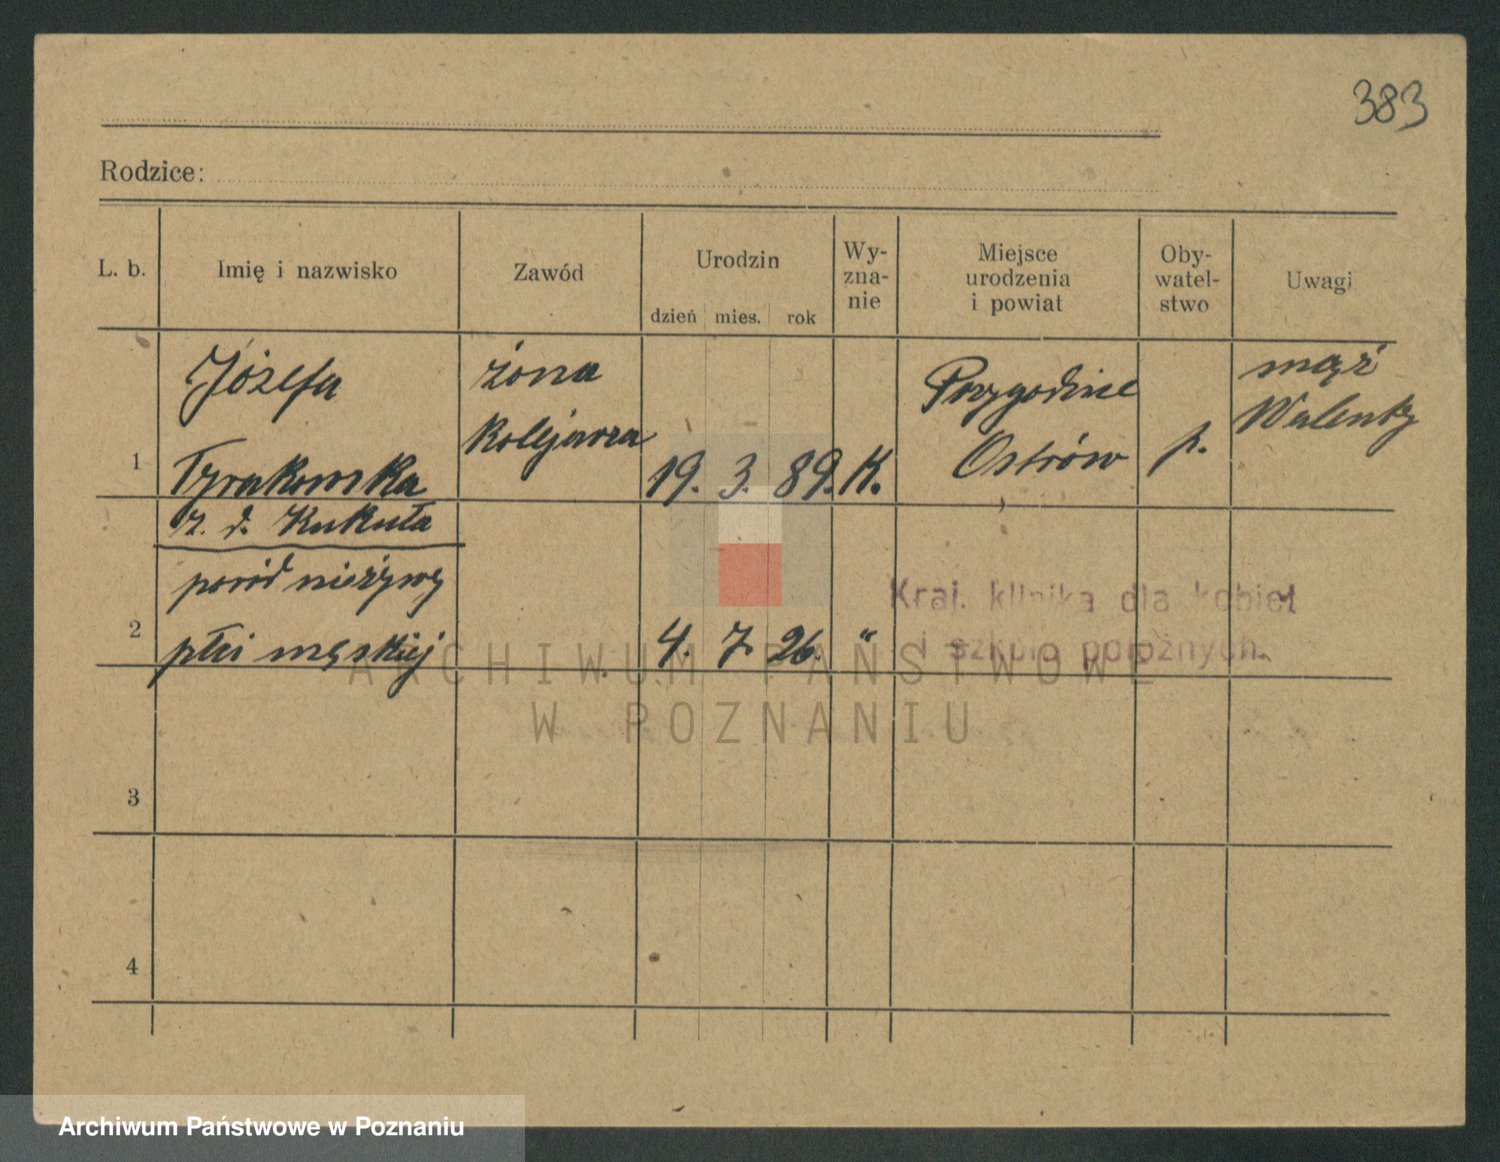 383
Rodzice:
L. b.
Imię i nazwisko
Zawód
Urodzin
dzień mies. rok
Wy-
zna-
nie
Miejsce
urodzenia
i powiat
Oby-
watel-
stwo
Uwagi
1
Józefa
Tyrakowska
z. d. Kukuła
żona
kolejarza
19. 3. 89.
K.
Przygodzice
Ostrów
p.
mąż
Walenty
2
poród nieżywy
płci męskiej
4. 7. 26.
"
Kraj. klinika dla kobiet
i szkoła położnych.
3
4
ARCHIWUM PAŃSTWOWE
W POZNANIU
Archiwum Państwowe w Poznaniu